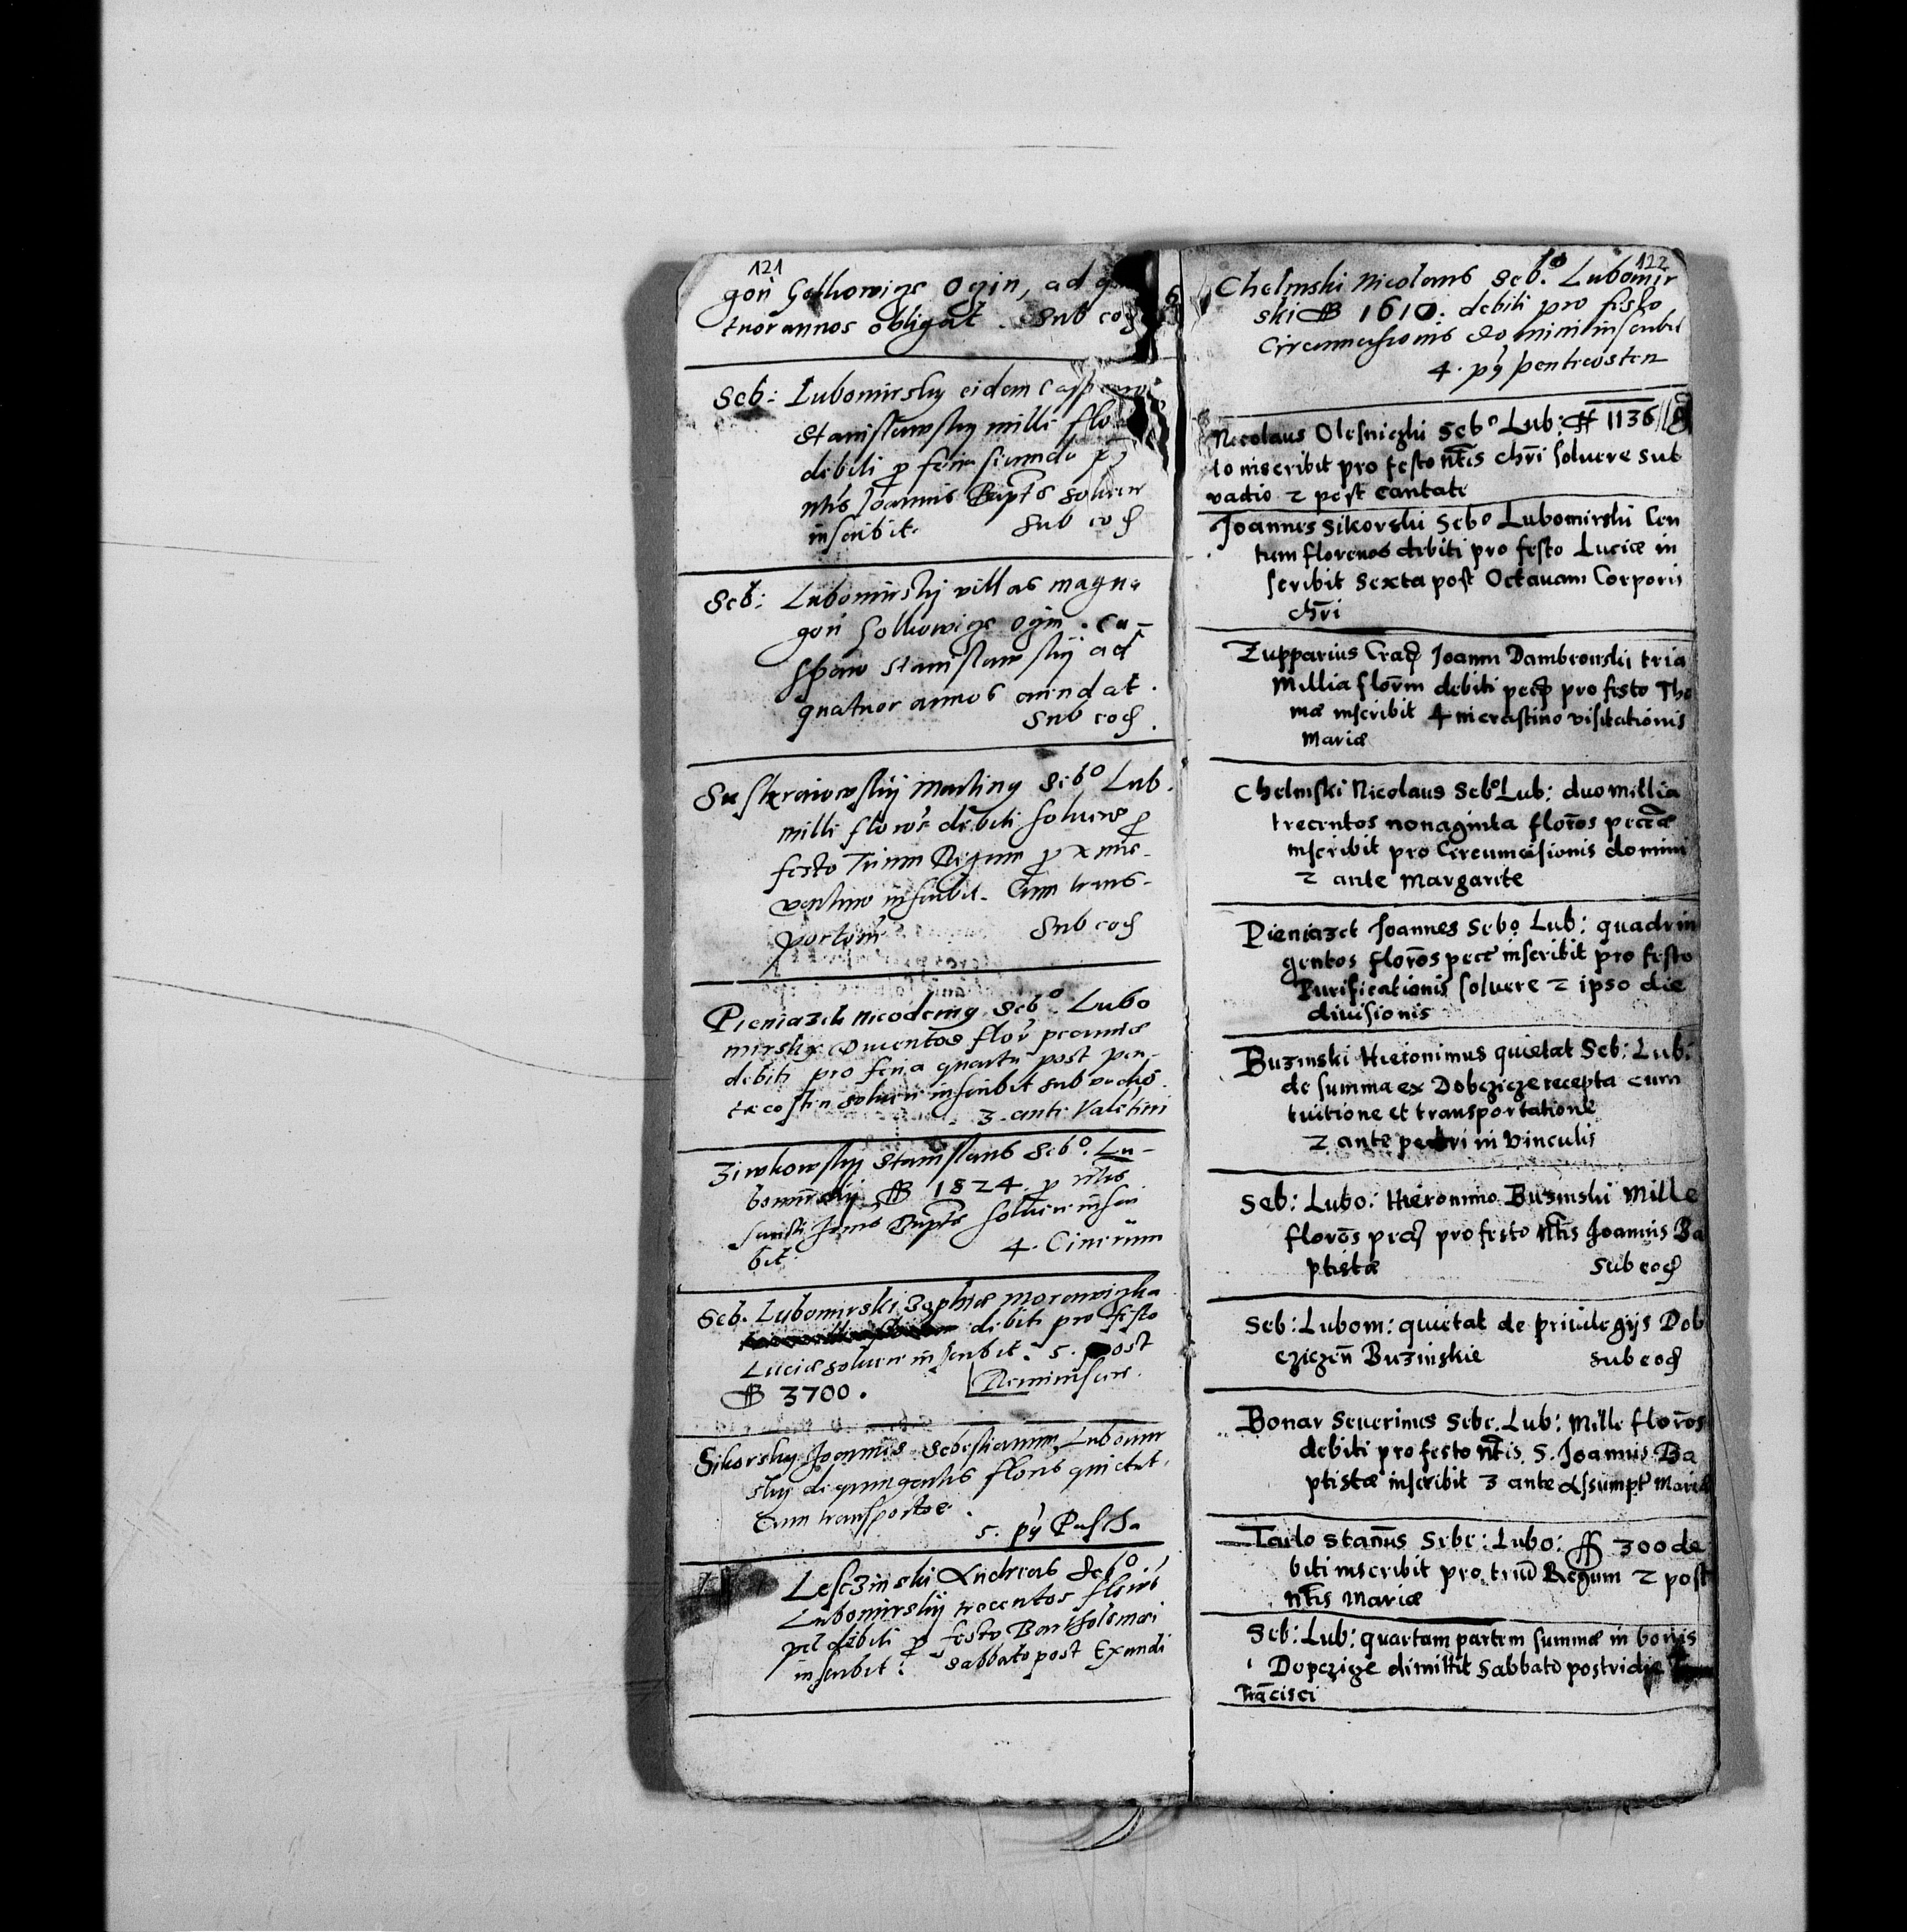 121
goñ Golkowicze Ogin, ad
tuor annos obligat. Sub eod
Seb: Lubomirsky eidem Casparo
Stanislawsky mille flo
debiti p feria secunda p
ntis Joannis Bapte soluere
inscribit. Sub eod
Seb: Lubomirskij villas magna
goñ Golkowicze Ogin. Ca-
sparo Stanislawskij ad
quatuor annos arendat.
Sub eod.
Martinq Sebo Lub.
mille floros debiti soluere p
festo Trium Regum p
inscribit. Cum trans-
portone Sub eod
Pieniazek Nicodemq Sebo. Lubo
mirsky Ducentos floros pecuniae
debiti pro feria quarta post pen-
tecosten soluere inscribit sub vadio.
3. ante Valetini
Ziwkowskij Stanislaus Sebo. Lu-
bomirskij ff 1824. p ntis
Sancti Joñis Bapte soluere inscri
bit. 4. Cinerum
Seb. Lubomirski Zophiae Morawiczka
debiti pro festo
Luciae soluere inscribit. 5. post
ff 3700. Reminiscere.
Sikorsky Joannes Sebestianum Lubomir
sky de quingentis floris quietat.
Cum transportoe.
5. pq Pascha
Lesczinski Andreas Sebo
Lubomirskij trecentos floros
pec debiti p festo Bartholomaei
inscribit. Sabbato post Exaudi
122
Chelmski Nicolaus Sebo. Lubomir
ski ff 1610. debiti pro festo
Circumcisionis Domini inscribit
4. pq pentecosten
Nicolaus Olesniczki Sebo Lub: ff 1136
inscribit pro festo ntis chri soluere sub
vadio 2 post Cantate
Joannes Sikorski Sebo Lubomirski Cen
tum florenos debiti pro festo Luciae in
scribit Sexta post Octauam Corporis
chri
Zupparius Crac Joanni Dambrowski tria
Millia florm debiti pec pro festo Tho
mae inscribit 4 in crastino visitationis
Mariae
Chelmski Nicolaus Sebo Lub: duo millia
trecentos nonaginta floros peccae
inscribit pro Circumcisionis domini
2 ante Margarite
Pieniazek Joannes Sebo Lub: quadrin
gentos floros pecc inscribit pro festo
Purificationis soluere 2 ipso die
diuisionis
Buzinski Hieronimus quietat Seb: Lub:
de summa ex Dobczicze recepta cum
tuitione et transportatione
2 ante petri in vinculis
Seb: Lubo: Hieronimo Buzinski Mille
floros pec pro festo Ntis Joannis Ba
ptistae Sub eod
Seb: Lubom: quietat de priuilegijs Dob
cziczen Buzinskie sub eod
Bonar Seuerinus Sebe. Lub: Mille floros
debiti pro festo Ntis. S. Joannis Ba
ptistae inscribit 3 ante Assumpt Mariae
Tarlo Stanus Sebe: Lubo: ff 300 de
biti inscribit pro triu Regum 2 post
Ntis Mariae
Seb: Lub: quartam partem summae in bonis
Dopczicze dimittit Sabbato postridie
Francisci